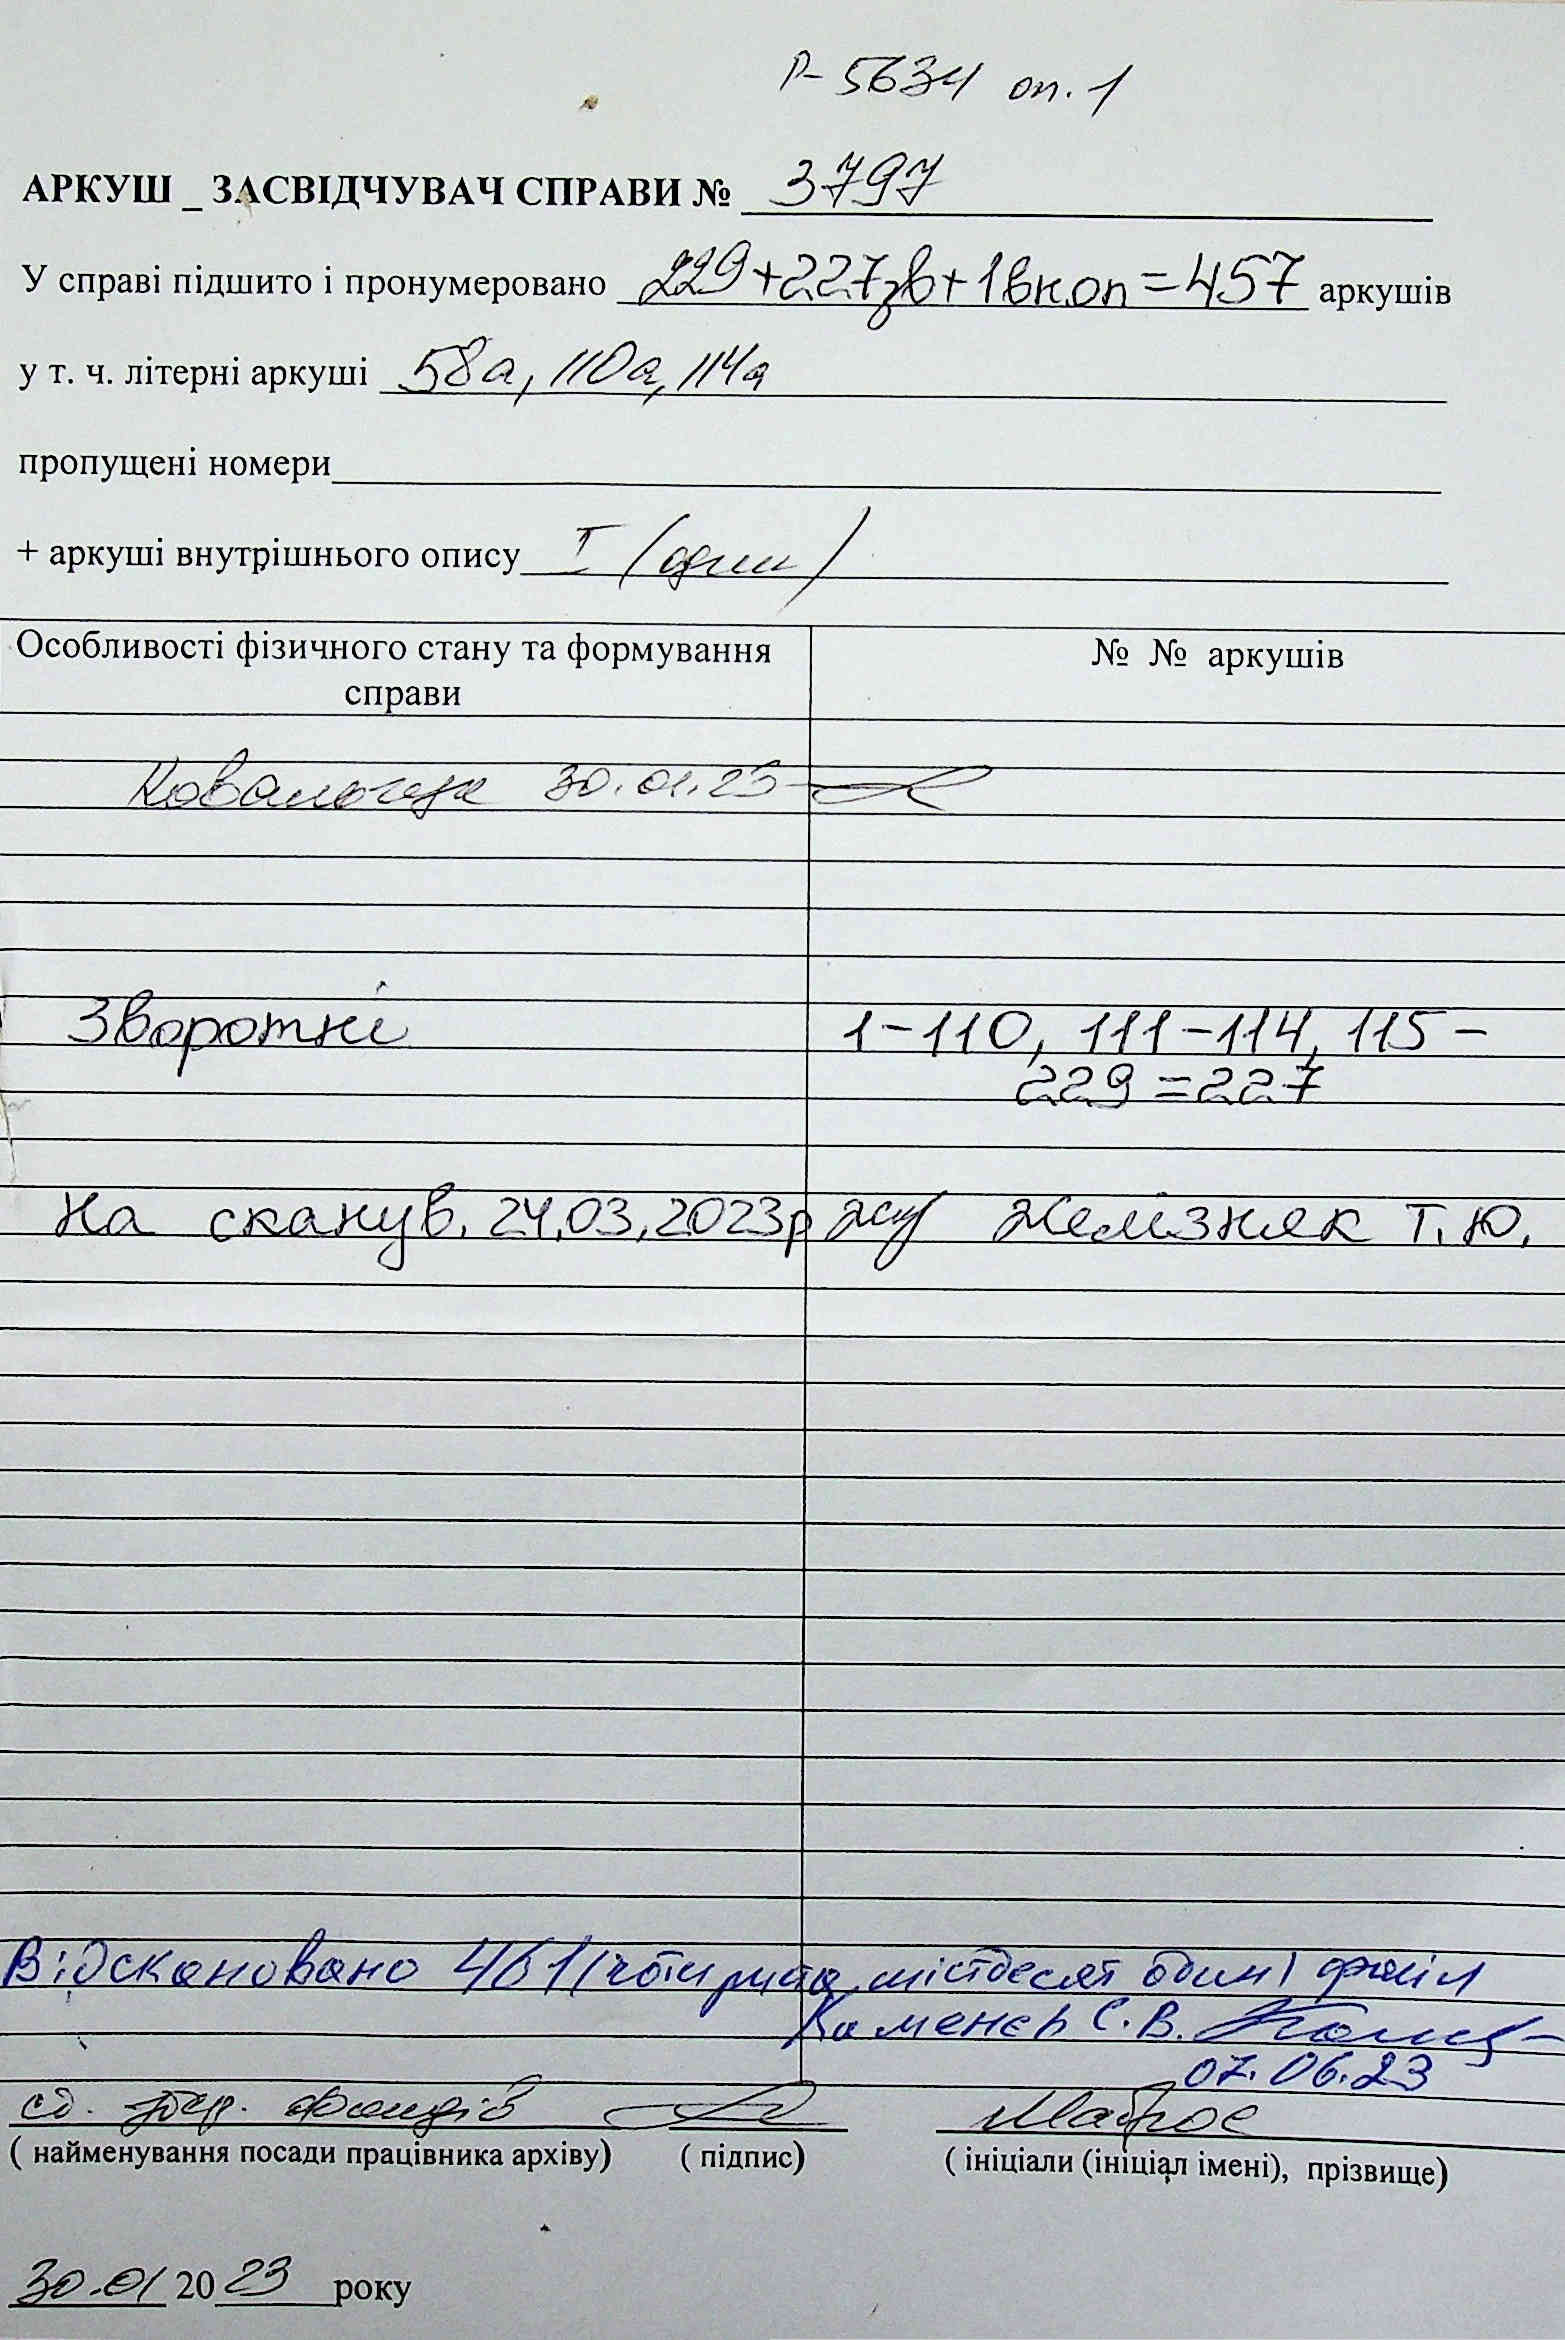 Р-5634 оп. 1
АРКУШ _ ЗАСВІДЧУВАЧ СПРАВИ № 3797
У справі підшито і пронумеровано 229+227зв+1вк.оп=457 аркушів
у т. ч. літерні аркуші 58а, 110а, 114а
пропущені номери
+ аркуші внутрішнього опису I (один)
Особливості фізичного стану та формування справи
№ № аркушів
30.01.23
Зворотні 1-110, 111-114, 115-
229=227
На сканув. 24.03.2023р Желізняк Т.Ю.
Відскановано 461 (чотириста шістдесят один) файл
Каменєв С.В.
07.06.23
фондів
(найменування посади працівника архіву) (підпис) (ініціали (ініціал імені), прізвище)
30.01 2023 року